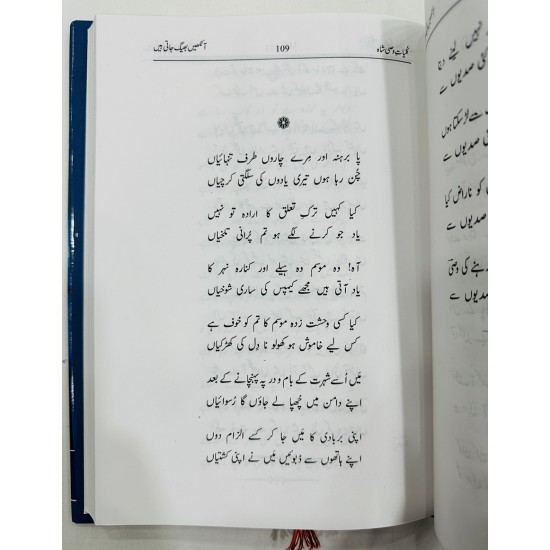 کلیاتِ وصی شاہ 109 آنکھیں بھیگ جاتی ہیں
پا برہنہ اور مِرے چاروں طرف تنہائیاں
چُن رہا ہوں تیری یادوں کی سلگتی کرچیاں
کیا کہیں ترکِ تعلق کا ارادہ تو نہیں
یاد جو کرنے لگے ہو تم پُرانی تلخیاں
آہ! وہ موسم وہ بیلے اور کنارہ نہر کا
یاد آتی ہیں مجھے کیمپس کی ساری شوخیاں
کیا کسی وحشت زدہ موسم کا تم کو خوف ہے
کس لیے خاموش ہو کھولو نا دِل کی کھڑکیاں
مَیں اُسے شہرت کے بام و در پہ پہنچانے کے بعد
اپنے دامن میں چھپا لے جاؤں گا رُسوائیاں
اپنی بربادی کا مَیں جا کر کسے الزام دوں
اپنے ہاتھوں سے ڈبوئیں مَیں نے اپنی کشتیاں
نہیں لینے دیتا
صدیوں سے
سے لڑ سکتا ہوں
صدیوں سے
کو ناراض کیا
صدیوں سے
رہنے کی وصی
صدیوں سے